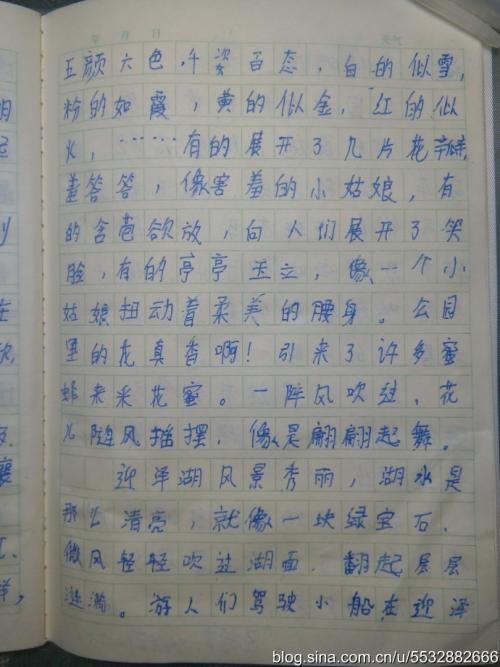 五颜六色,千姿百态,白的似雪,
粉的如霞,黄的似金,红的似
火,……有的展开了几片花瓣,
羞答答,像害羞的小姑娘,有
的含苞欲放,向人们展开了笑
脸,有的亭亭玉立,像一个小
姑娘扭动着柔美的腰身。公园
里的花真香啊!引来了许多蜜
蜂来采花蜜。一阵风吹过,花
儿随风摇摆,像是翩翩起舞。
迎泽湖风景秀丽,湖水是
那么清亮,就像一块绿宝石,
微风轻轻吹过湖面,翻起层层
涟漪。游人们驾驶小船在迎泽
blog.sina.com.cn/u/5532882666